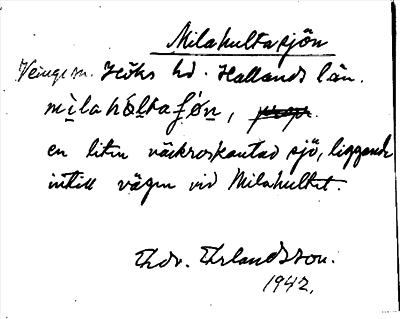 Milahultasjön
Veinge sn. Höks hd. Hallands län.
mìlahόltaʃǿn,
en liten vassbevuxen sjö, liggande
intill vägen vid Milahultet.
Thdv. Erlandsson.
1942.